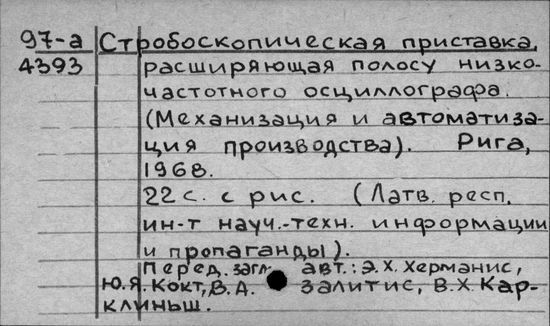 97-а Стробоскопическая приставка,
4393 расширяющая полосу низко-
частотного осциллографа.
(Механизация и автоматиза-
ция производства). Рига,
1968.
22 с. с рис. (Латв. респ.
ин-т науч.-техн. информации
и пропаганды).
Перед. загл. авт.: Э.Х. Херманис,
Ю.Я. Кокт, В.А. Залитис, В.Х. Кар-
клиньш.